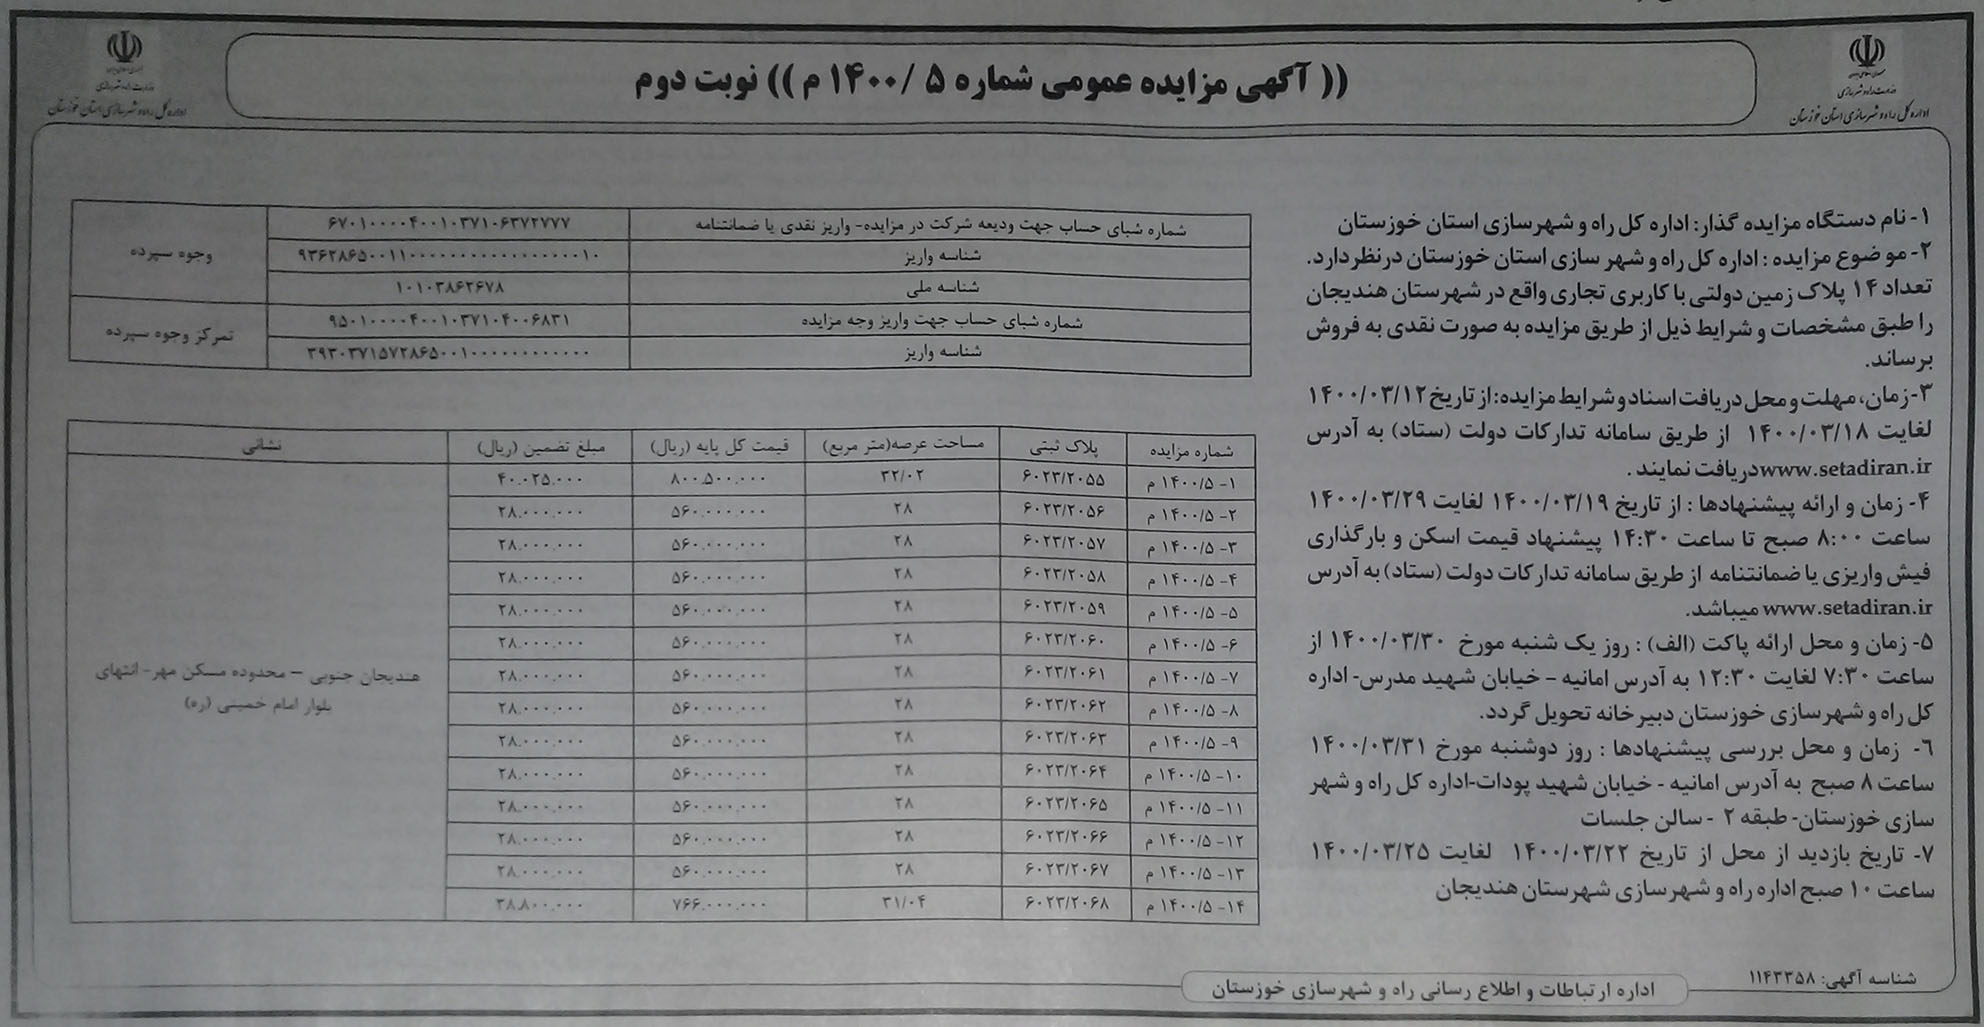 جمهوری اسلامی ایران
وزارت راه و شهرسازی
اداره کل راه و شهرسازی استان خوزستان
(( آگهی مزایده عمومی شماره ۵ /۱۴۰۰ م )) نوبت دوم
وزارت راه و شهرسازی
اداره کل راه و شهرسازی استان خوزستان
۱- نام دستگاه مزایده گذار: اداره کل راه و شهرسازی استان خوزستان
۲- موضوع مزایده : اداره کل راه و شهر سازی استان خوزستان درنظر دارد.
تعداد ۱۴ پلاک زمین دولتی با کاربری تجاری واقع در شهرستان هندیجان
را طبق مشخصات و شرایط ذیل از طریق مزایده به صورت نقدی به فروش
برساند.
۳-زمان، مهلت و محل دریافت اسناد و شرایط مزایده: از تاریخ ۱۴۰۰/۰۳/۱۲
لغایت ۱۴۰۰/۰۳/۱۸ از طریق سامانه تدارکات دولت (ستاد) به آدرس
www.setadiran.ir دریافت نمایند .
۴- زمان و ارائه پیشنهادها : از تاریخ ۱۴۰۰/۰۳/۱۹ لغایت ۱۴۰۰/۰۳/۲۹
ساعت ۸:۰۰ صبح تا ساعت ۱۴:۳۰ پیشنهاد قیمت اسکن و بارگذاری
فیش واریزی یا ضمانتنامه از طریق سامانه تدارکات دولت (ستاد) به آدرس
www.setadiran.ir میباشد.
۵- زمان و محل ارائه پاکت (الف) : روز یک شنبه مورخ ۱۴۰۰/۰۳/۳۰ از
ساعت ۷:۳۰ لغایت ۱۲:۳۰ به آدرس امانیه - خیابان شهید مدرس- اداره
کل راه و شهرسازی خوزستان دبیرخانه تحویل گردد.
۶- زمان و محل بررسی پیشنهادها : روز دوشنبه مورخ ۱۴۰۰/۰۳/۳۱
ساعت ۸ صبح به آدرس امانیه - خیابان شهید پودات-اداره کل راه و شهر
سازی خوزستان- طبقه ۲ - سالن جلسات
۷- تاریخ بازدید از محل از تاریخ ۱۴۰۰/۰۳/۲۲ لغایت ۱۴۰۰/۰۳/۲۵
ساعت ۱۰ صبح اداره راه و شهرسازی شهرستان هندیجان
شماره شبای حساب جهت ودیعه شرکت در مزایده- واریز نقدی یا ضمانتنامه ۶۷۰۱۰۰۰۰۴۰۰۱۰۳۷۱۰۶۳۷۲۷۷۷ وجوه سپرده
شناسه واریز
شناسه ملی ۱۰۱۰۳۸۶۲۶۷۸
شماره شبای حساب جهت واریز وجه مزایده ۹۵۰۱۰۰۰۰۴۰۰۱۰۳۷۱۰۴۰۰۶۸۳۱ تمرکز وجوه سپرده
شناسه واریز
شماره مزایده پلاک ثبتی مساحت عرصه(متر مربع) قیمت کل پایه (ریال) مبلغ تضمین (ریال) نشانی
۱- ۱۴۰۰/۵ م ۶۰۲۳/۲۰۵۵ ۳۲/۰۲ ۸۰۰.۵۰۰.۰۰۰ ۴۰.۰۲۵.۰۰۰
۲- ۱۴۰۰/۵ م ۶۰۲۳/۲۰۵۶ ۲۸ ۵۶۰.۰۰۰.۰۰۰ ۲۸.۰۰۰.۰۰۰
۳- ۱۴۰۰/۵ م ۶۰۲۳/۲۰۵۷ ۲۸ ۵۶۰.۰۰۰.۰۰۰ ۲۸.۰۰۰.۰۰۰
۴- ۱۴۰۰/۵ م ۶۰۲۳/۲۰۵۸ ۲۸ ۵۶۰.۰۰۰.۰۰۰ ۲۸.۰۰۰.۰۰۰
۵- ۱۴۰۰/۵ م ۶۰۲۳/۲۰۵۹ ۲۸ ۵۶۰.۰۰۰.۰۰۰ ۲۸.۰۰۰.۰۰۰
۶- ۱۴۰۰/۵ م ۶۰۲۳/۲۰۶۰ ۲۸ ۵۶۰.۰۰۰.۰۰۰ ۲۸.۰۰۰.۰۰۰
۷- ۱۴۰۰/۵ م ۶۰۲۳/۲۰۶۱ ۲۸ ۵۶۰.۰۰۰.۰۰۰ ۲۸.۰۰۰.۰۰۰ هندیجان جنوبی – محدوده مسکن مهر- انتهای
۸- ۱۴۰۰/۵ م ۶۰۲۳/۲۰۶۲ ۲۸ ۵۶۰.۰۰۰.۰۰۰ ۲۸.۰۰۰.۰۰۰ بلوار امام خمینی (ره)
۹- ۱۴۰۰/۵ م ۶۰۲۳/۲۰۶۳ ۲۸ ۵۶۰.۰۰۰.۰۰۰ ۲۸.۰۰۰.۰۰۰
۱۰- ۱۴۰۰/۵ م ۶۰۲۳/۲۰۶۴ ۲۸ ۵۶۰.۰۰۰.۰۰۰ ۲۸.۰۰۰.۰۰۰
۱۱- ۱۴۰۰/۵ م ۶۰۲۳/۲۰۶۵ ۲۸ ۵۶۰.۰۰۰.۰۰۰ ۲۸.۰۰۰.۰۰۰
۱۲- ۱۴۰۰/۵ م ۶۰۲۳/۲۰۶۶ ۲۸ ۵۶۰.۰۰۰.۰۰۰ ۲۸.۰۰۰.۰۰۰
۱۳- ۱۴۰۰/۵ م ۶۰۲۳/۲۰۶۷ ۲۸ ۵۶۰.۰۰۰.۰۰۰ ۲۸.۰۰۰.۰۰۰
۱۴- ۱۴۰۰/۵ م ۶۰۲۳/۲۰۶۸ ۳۱/۰۴ ۷۶۶.۰۰۰.۰۰۰ ۳۸.۸۰۰.۰۰۰
شناسه آگهی: ۱۱۴۳۳۵۸
اداره ارتباطات و اطلاع رسانی راه و شهرسازی خوزستان